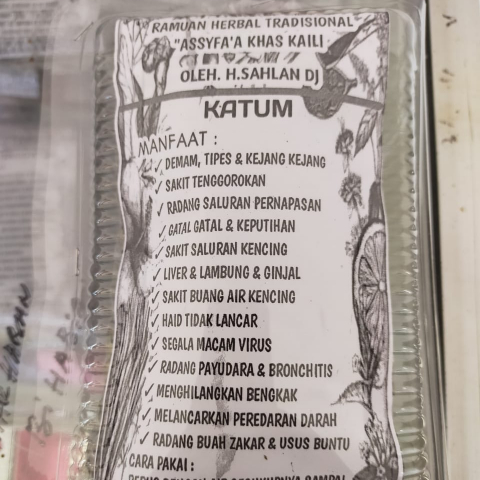 RAMUAN HERBAL TRADISIONAL
"ASSYFA'A KHAS KAILI
OLEH. H.SAHLAN DJ
KATUM
MANFAAT :
✓ DEMAM, TIPES & KEJANG KEJANG
✓ SAKIT TENGGOROKAN
✓ RADANG SALURAN PERNAPASAN
✓ GATAL GATAL & KEPUTIHAN
✓ SAKIT SALURAN KENCING
✓ LIVER & LAMBUNG & GINJAL
✓ SAKIT BUANG AIR KENCING
✓ HAID TIDAK LANCAR
✓ SEGALA MACAM VIRUS
✓ RADANG PAYUDARA & BRONCHITIS
✓ MENGHILANGKAN BENGKAK
✓ MELANCARKAN PEREDARAN DARAH
✓ RADANG BUAH ZAKAR & USUS BUNTU
CARA PAKAI :